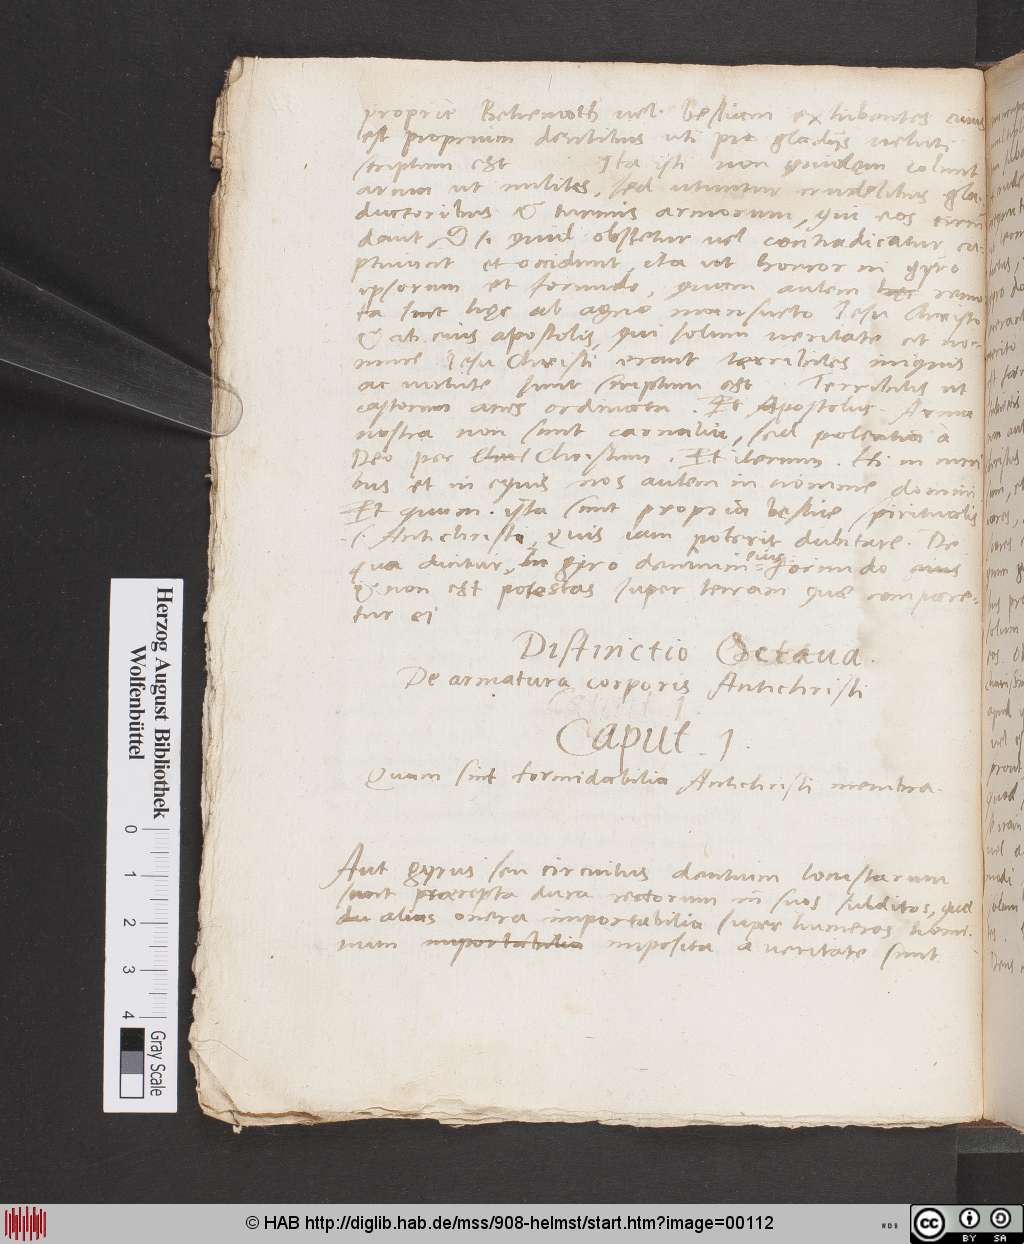 proprie Behemoth vel bestiam exhibentes cuius
est proprium dentibus uti pro gladijs veluti
scriptum est Ita isti non quidem colunt
arma ut milites, sed utuntur crudelibus gla-
ductoribus & turmis armorum, qui eos
dant, & si quid obstetur vel contradicatur ca-
et occidunt, ita ut horror in gyro
ipsorum et formido, quam autem remo
ta sunt hęc ab agno mansueto Jesu Christo
& ab eius apostolis, qui solum veritate et no-
mine Jesu Christi erant terribiles iniquis
ac virtute sicut scriptum est Terribilis ut
castrorum acies ordinata. Et Apostolus. Arma
nostra non sunt carnalia, sed potentia à
Deo per Christum. Et iterum. Hi in curri
bus et in equis nos autem in nomine domini
Et quum ista sunt propria bestiæ spiritualis
s. Antichristi, quis iam poterit dubitare. De
qua dicitur, In gyro dentium eius formido
& non est potestas super terram quæ compare-
tur ei
Distinctio Octava.
De armatura corporis Antichristi
Caput 1.
Quam sint formidabilia Antichristi membra.
Aut gyrus seu circuitus dentium locustarum
sunt præcepta dura rectorum in suos subditos, quæ
alias onera importabilia super humeros homi-
num importabilia imposita a veritate sunt
Herzog August Bibliothek
Wolfenbüttel
0 1 2 3 4
Gray Scale
© HAB http://diglib.hab.de/mss/908-helmst/start.htm?image=00112
WDB
cc BY SA